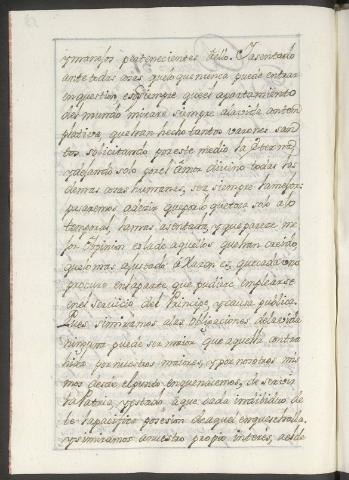 y manejos pertenecientes a ello. Y asentado
ante todas cosas, que lo que nunca puede entrar
en question es siempre que el apartamiento
del mundo mirare siempre a la vida contem
plativa, que han hecho tantos varones san
tos solicitando por este medio la eterna,
y dejando solo por el Amor divino todas las
demas cosas humanas, sea siempre la mejor:
pasaremos a dezir que por lo que toca solo a lo
temporal, la mas asentada, y que parece me
jor Opinion es la de aquellos que han creido,
que lo mas ajustado a Razon es, que cada uno
procure en la parte que pudiere emplearse
en el servicio del Principe, y causa publica.
Pues si miramos a las obligaciones de la vida
ninguna puede ser maior que aquella contra
hida por nuestros maiores, y por nosotros mis
mos desde el punto en que nacemos, de servir
la Patria, y estado a que cada individuo de
be la pacifica posesion de aquel en que se halla,
y si miramos a nuestro propio interes, es de